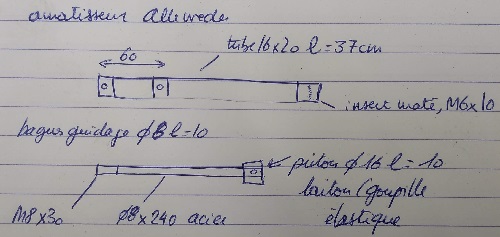 amortisseur Allumede
60
tube 16x20 l = 37cm
insert maté, M6x10
bagues guidage Ø8 l=10
piston Ø16 l = 10
laiton (goupille
élastique
M8x30
Ø8x240 acier